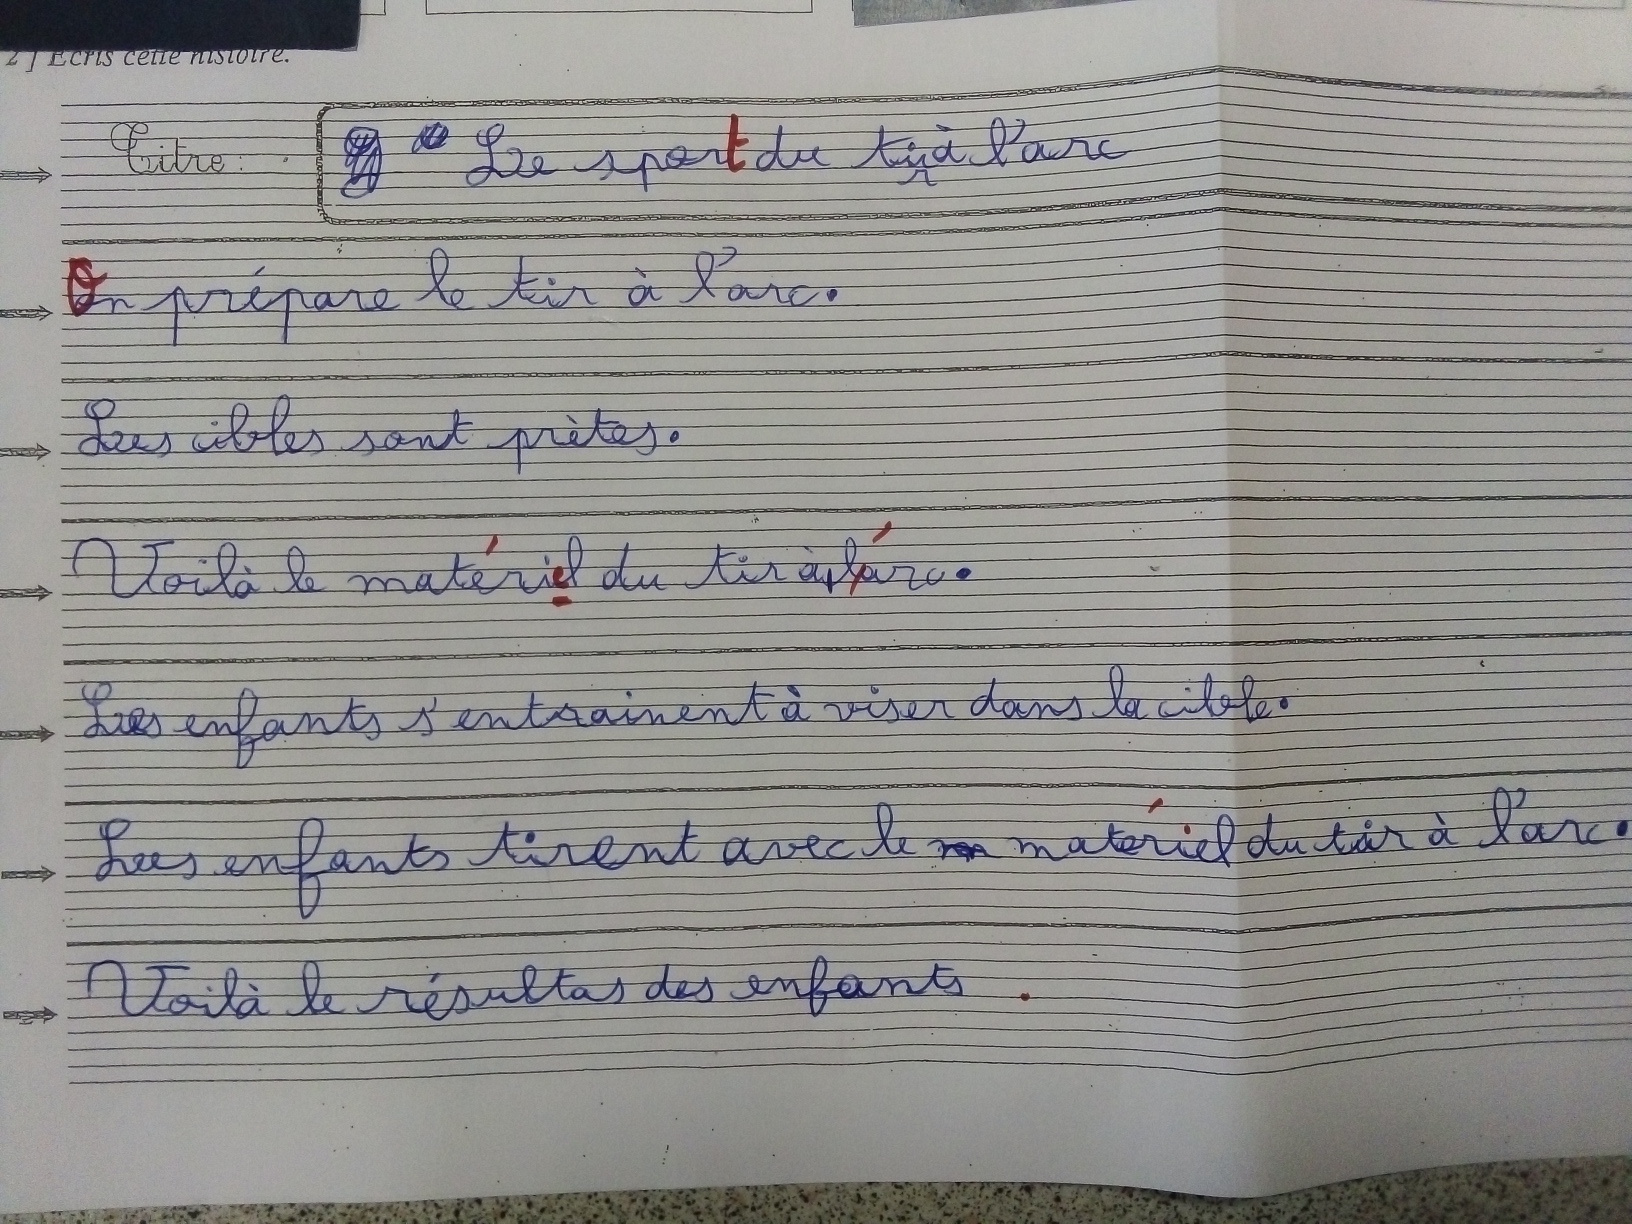 2 ] Ecris cette histoire.
Titre : Le sport du tir à l'arc
On prépare le tir à l'arc.
Les cibles sont prètes.
Voilà le matériel du tir à l'arc.
Les enfants s'entrainent à viser dans la cible.
Les enfants tirent avec le matériel du tir à l'arc.
Voilà le résultas des enfants.